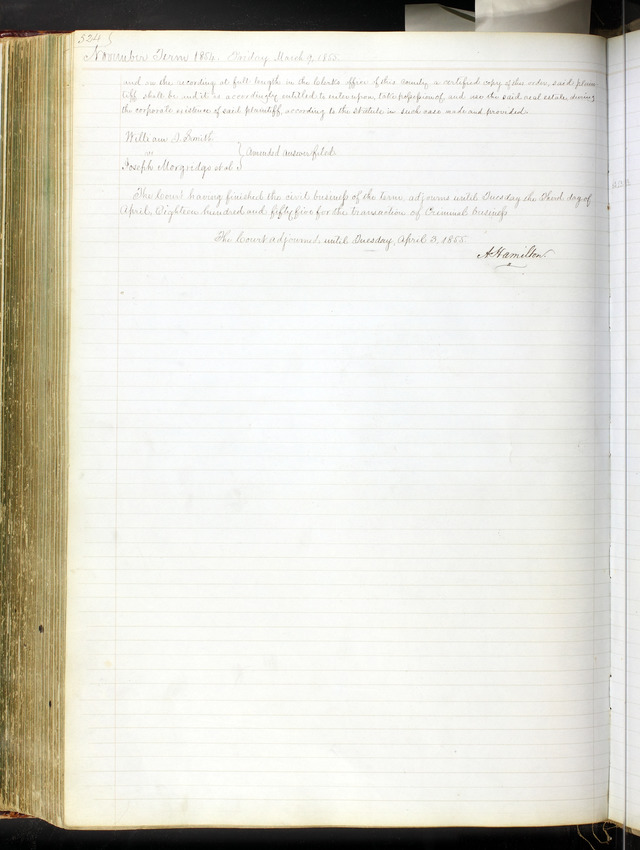 524
November Term 1854. Friday March 9, 1855.
and on the recording at full length in the Clerk's office of this County a certified copy of this order, said plain-
tiff shall be and it is accordingly entitled to enter upon, take possession of, and use the said real estate during
the corporate existence of said plaintiff, according to the statute in such case made and provided.
William J. Smith
vs } Amended answer filed.
Joseph Morgridge et al
The Court having finished the civil business of the term adjourns until Tuesday the Third day of
April, Eighteen hundred and fifty five for the transaction of Criminal business
The Court adjourned until Tuesday, April 3, 1855.
A Hamilton